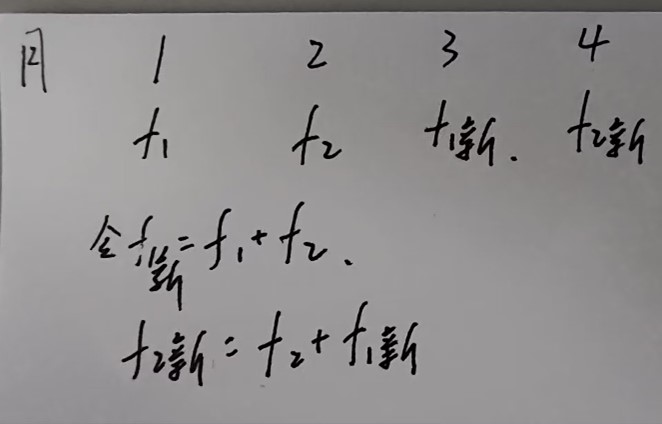 月 1 2 3 4
f₁ f₂ f₁新. f₂新
令f₁新=f₁+f₂.
f₂新=f₂+f₁新